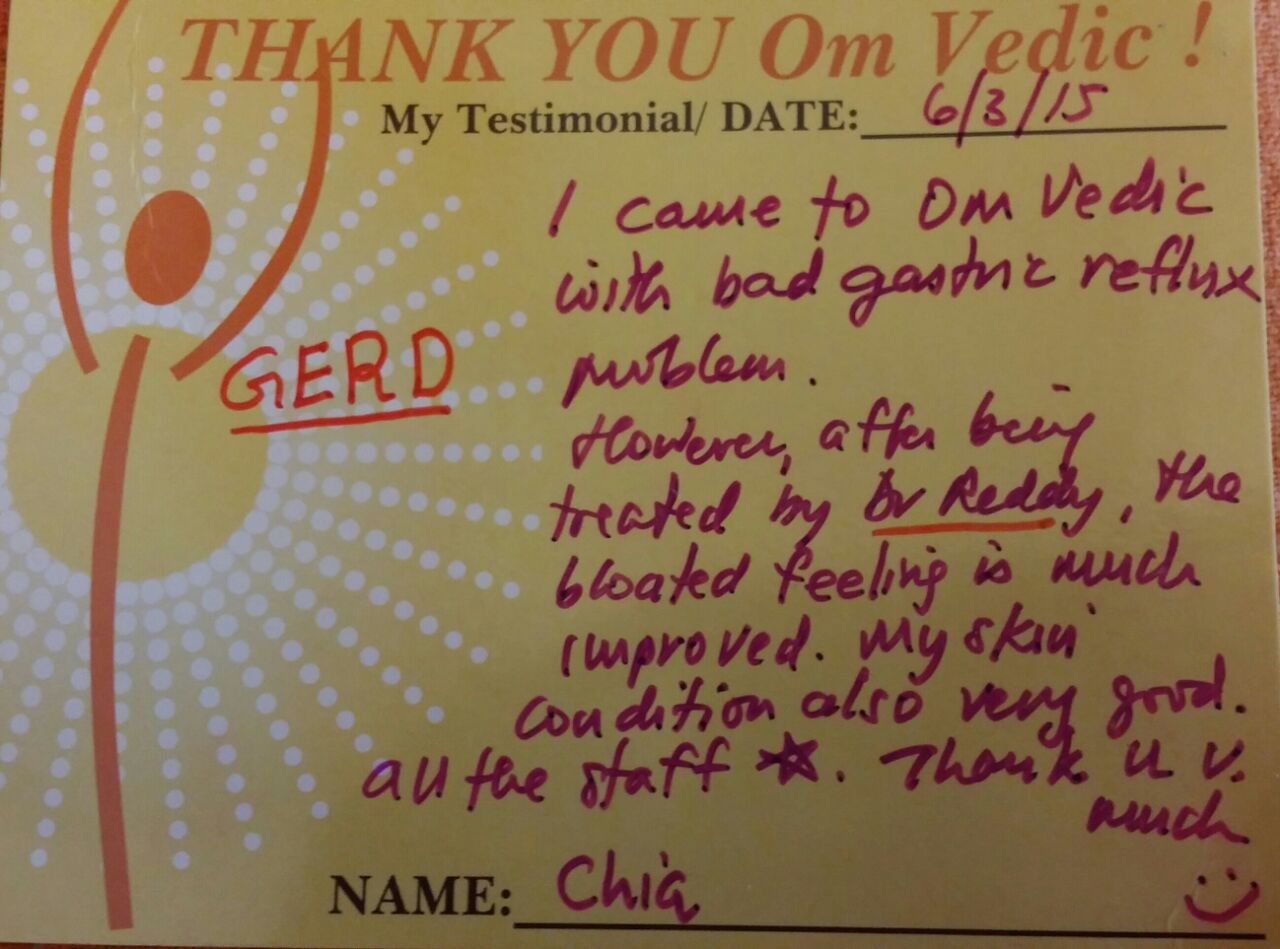 THANK YOU Om Vedic !
My Testimonial/ DATE: 6/3/15
I came to Om Vedic
with bad gastric reflux
problem.
GERD
However, after being
treated by Dr Reddy, the
bloated feeling is much
improved. My skin
condition also very good.
all the staff ☆. Thank u v.
much
NAME: Chia